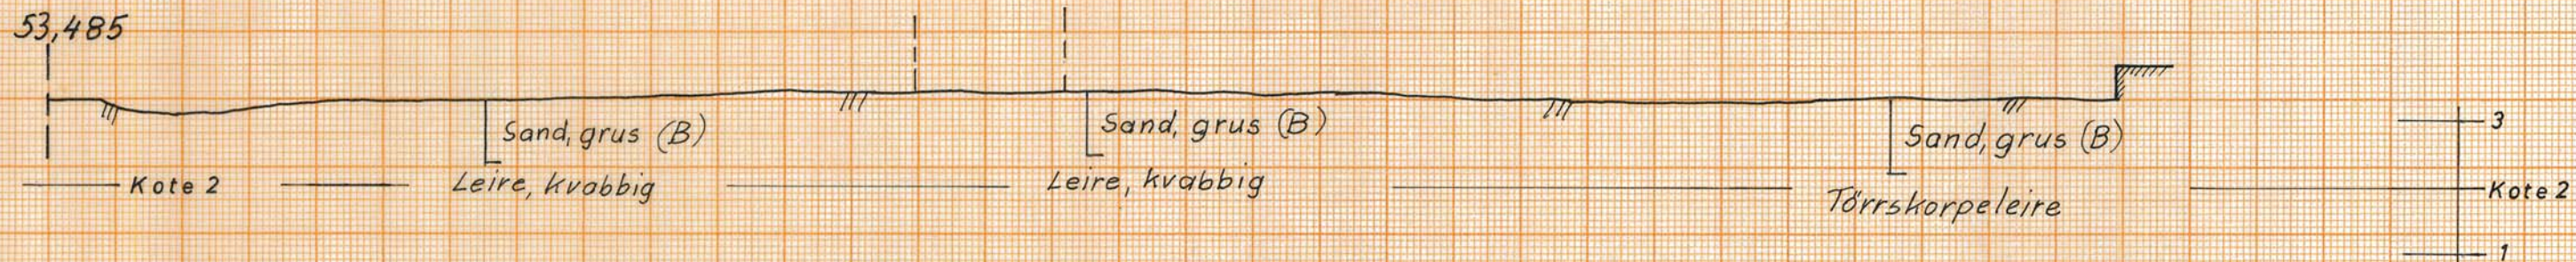 53,485
Sand, grus (B)
Sand, grus (B)
Sand, grus (B)
3
Kote 2
Leire, kvabbig
Leire, kvabbig
Törrskorpeleire
Kote 2
1